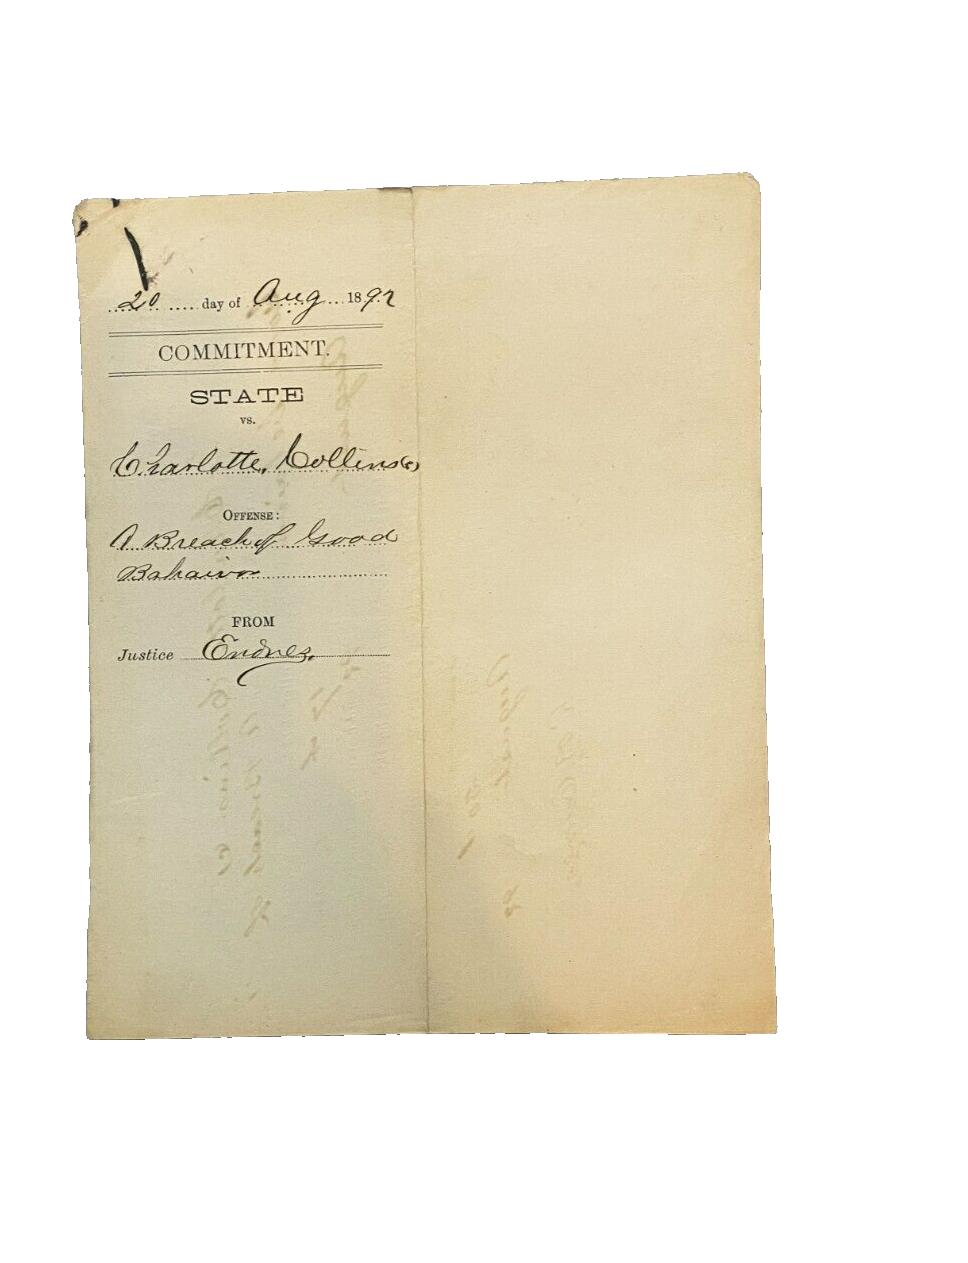 20 day of Aug 1892
COMMITMENT.
STATE
vs.
Charlotte, Collins (c)
OFFENSE:
A Breach of Good
Bahaivor
FROM
Justice